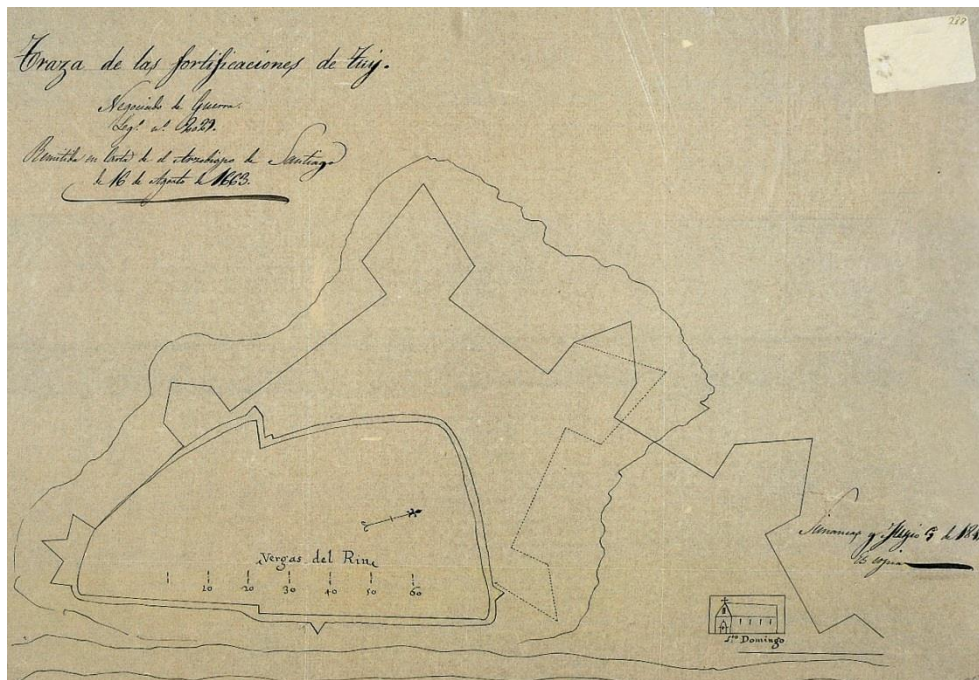 288
Traza de las fortificaciones de Tuy.
Negociado de Guerra.
Leg.º n.º 2029.
Remitida en Carta de el Arzobispo de Santiago
de 16 de Agosto de 1663.
Vergas del Rin
10 20 30 40 50 60
Simancas y 5 de 184
Es copia
S.to Domingo